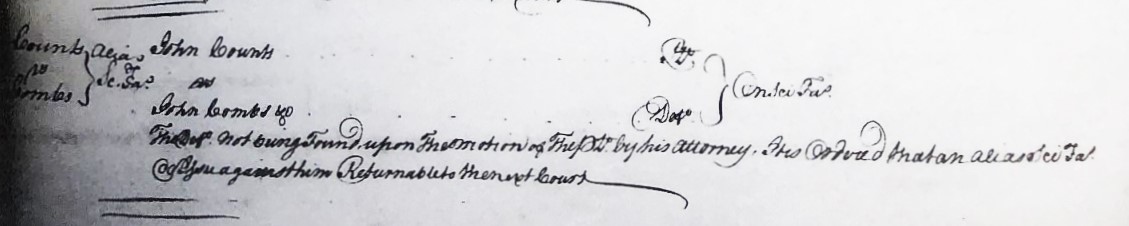 Counts } alias John Counts Plt }
vs } Sci. Fa. vs } On Sci Fa.
Combs } John Combs &c Deft }
The Deft. not being Found, upon The motion of The Plt. by his attorney, It is Ordered that an alias Sci Fa.
Issue against him Returnable to the next Court